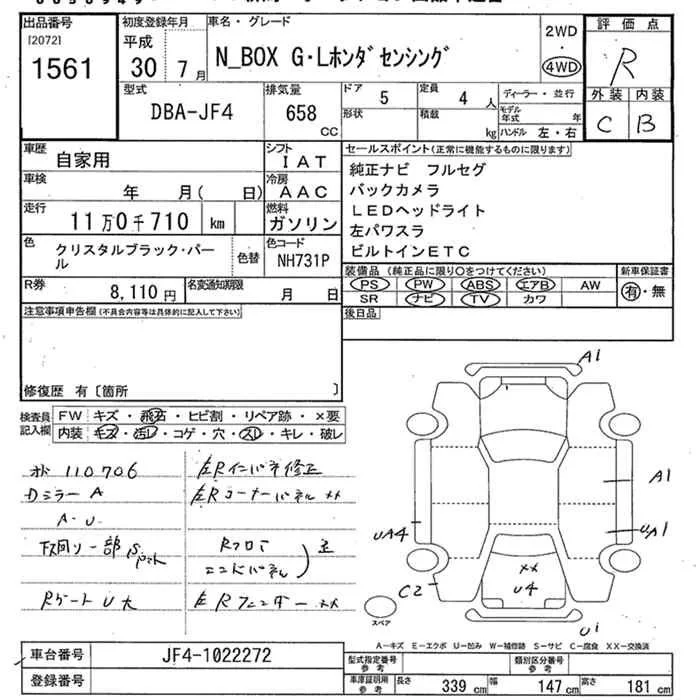 出品番号
[2072]
1561
初度登録年月
平成
30 7月
車名・グレード
N_BOX G・Lホンダセンシング
2WD
・
4WD
評価点
R
外装 内装
C B
型式
DBA-JF4
排気量
658
CC
ドア
5
定員
4 人
形状
積載
kg
ディーラー・並行
モデル年式 年
ハンドル 左・右
車歴
自家用
シフト
IAT
車検
年 月( 日)
冷房
AAC
走行
11万0千710 km
燃料
ガソリン
色
クリスタルブラック・パール
色替
色コード
NH731P
R券
8,110円
名変通知期限
月 日
セールスポイント(正常に機能するものに限ります)
純正ナビ フルセグ
バックカメラ
LEDヘッドライト
左パワスラ
ビルトインETC
装備品(純正品に限り○をつけてください)
PS PW ABS エアB AW
SR ナビ TV カワ
新車保証書
有・無
後日品
注意事項申告欄(不具合内容等は具体的に記入して下さい)
修復歴 有〔箇所 〕
検査員記入欄
FW キズ・飛石・ヒビ割・リペア跡・×要
内装 キズ・汚レ・コゲ・穴・スレ・キレ・破レ
110706
Dミラー A
A・U
下回り一部
Rゲート U大
左Rインパネ修正
左Rコーナーパネル XX
Rフロア
エンドパネル
左Rフェンダー XX
A1
A1
UA1
UA4
C2
XX
U4
U1
スペア
A-キズ E-エクボ U-凹み W-補修跡 S-サビ C-腐食 XX-交換済
車台番号
JF4-1022272
登録番号
型式指定番号
参考
類別区分番号
参考
車庫証明用
参考
長さ 339cm 幅 147cm 高さ 181cm